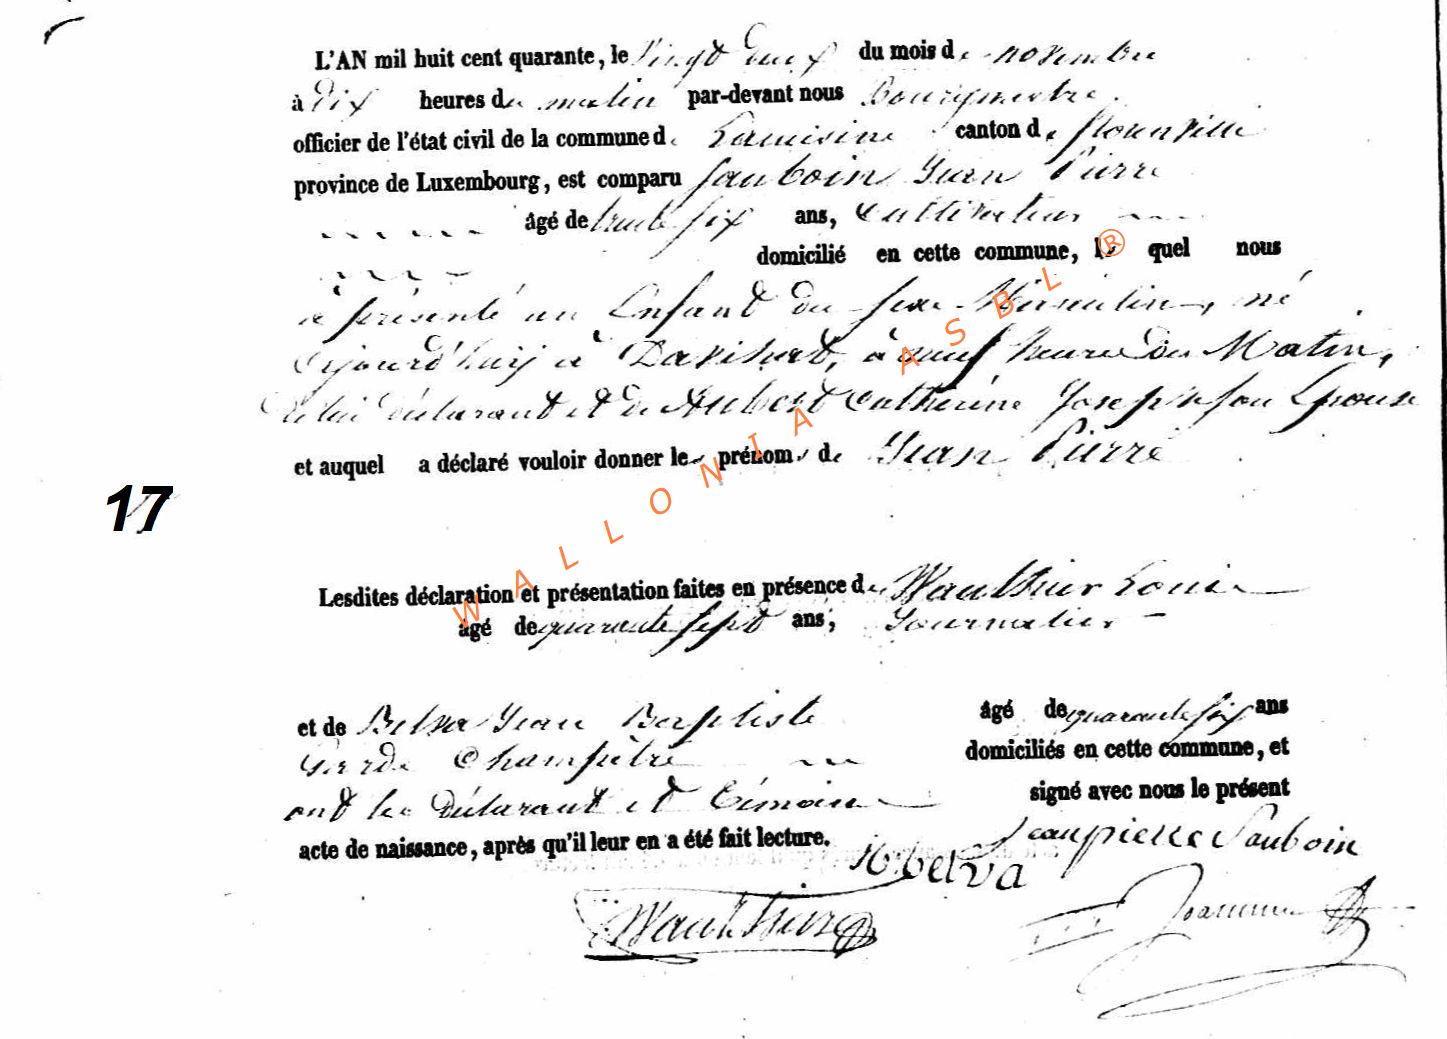 L'AN mil huit cent quarante, le vingt deux du mois de novembre
à Dix heures du matin par-devant nous Bourgmestre
officier de l'état civil de la commune de Lacuisine canton de florenville
province de Luxembourg, est comparu Sauboin Jean Pierre
âgé de trente six ans, Cultivateur
domicilié en cette commune, le quel nous
a présenté un Enfant du sexe Masculin, né
aujourd'huij à à neuf heures du Matin,
de lui déclarant et de Hubert Catherine Joseph son Epouse
et auquel a déclaré vouloir donner les prénoms de Jean Pierre
17
Lesdites déclaration et présentation faites en présence de Wauthier Louis
âgé de quarante sept ans, Journalier
et de Belva Jean Baptiste âgé de quarante six ans
Garde Champêtre domiciliés en cette commune, et
ont les Déclarant et Témoins signé avec nous le présent
acte de naissance, après qu'il leur en a été fait lecture.
jeanpierre Sauboin
belva
Wauthier
WALLONIA ASBL ®